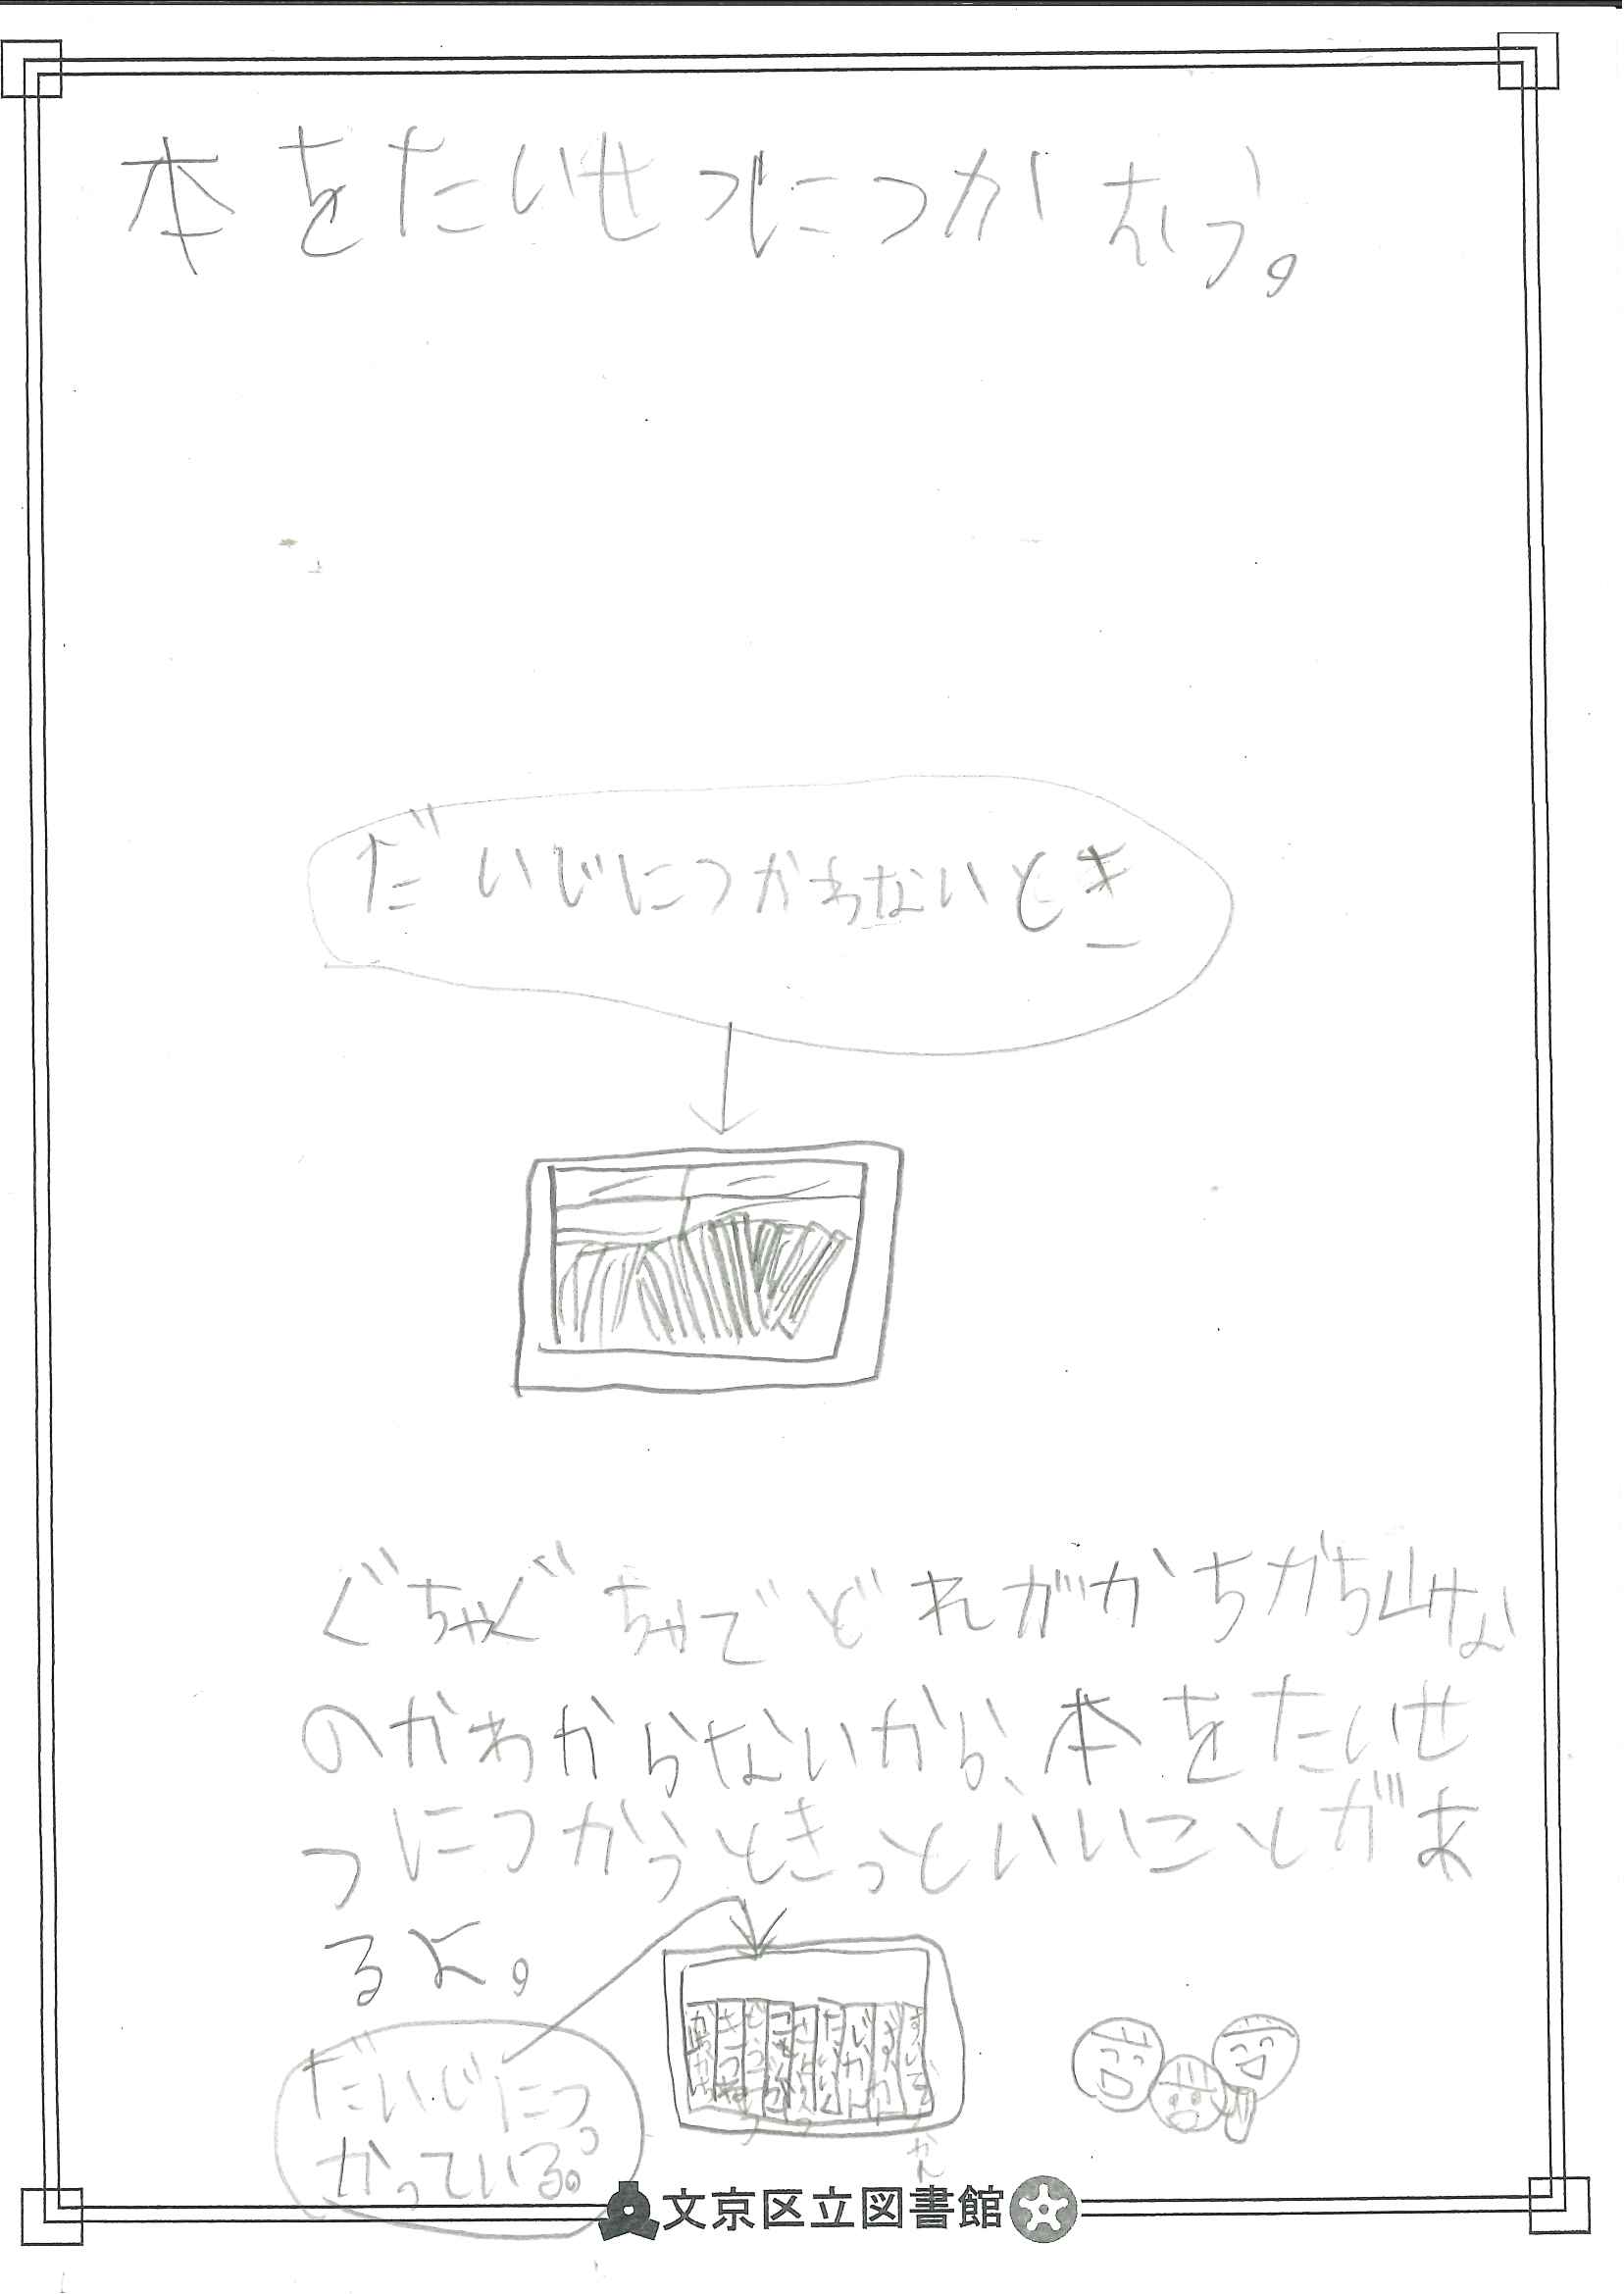 本をたいせつにつかおう。
だいじにつかわないとき
ぐちゃぐちゃでどれがかちかち山な
のかわからないから、本をたいせ
つにつかうときっといいことがあ
るよ。
だいじにつ
かっている。
文京区立図書館